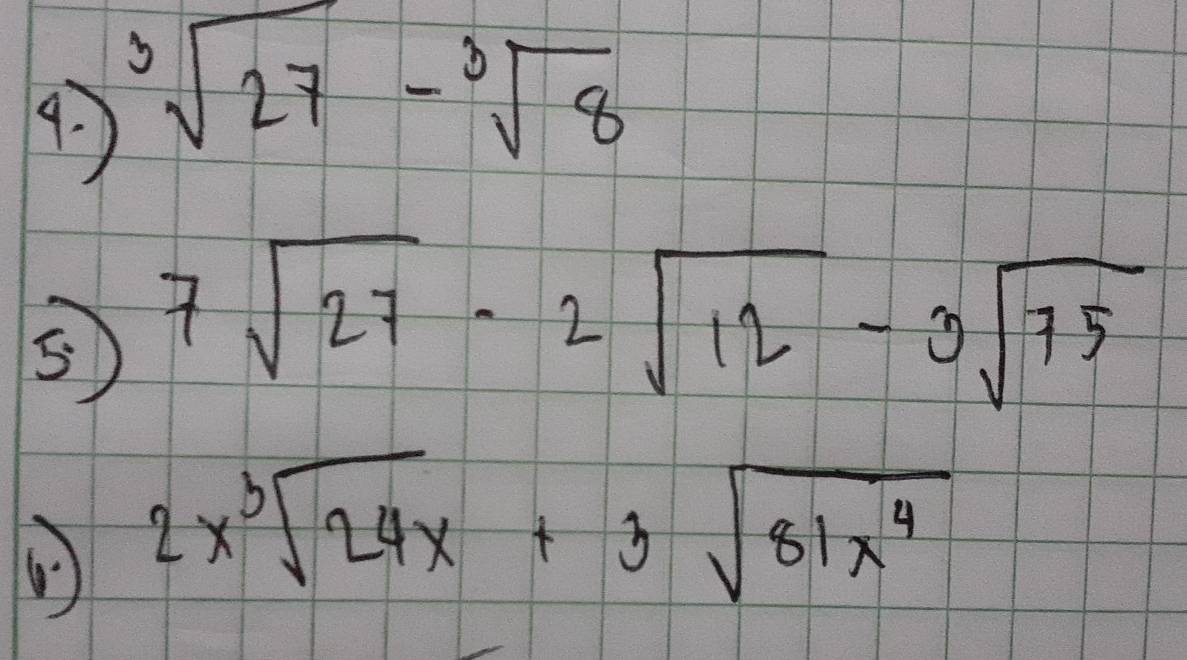 4.) ³√27 - ³√8
5.) 7√27 - 2√12 - 3√75
6.) 2x³√24x + 3√81x⁴